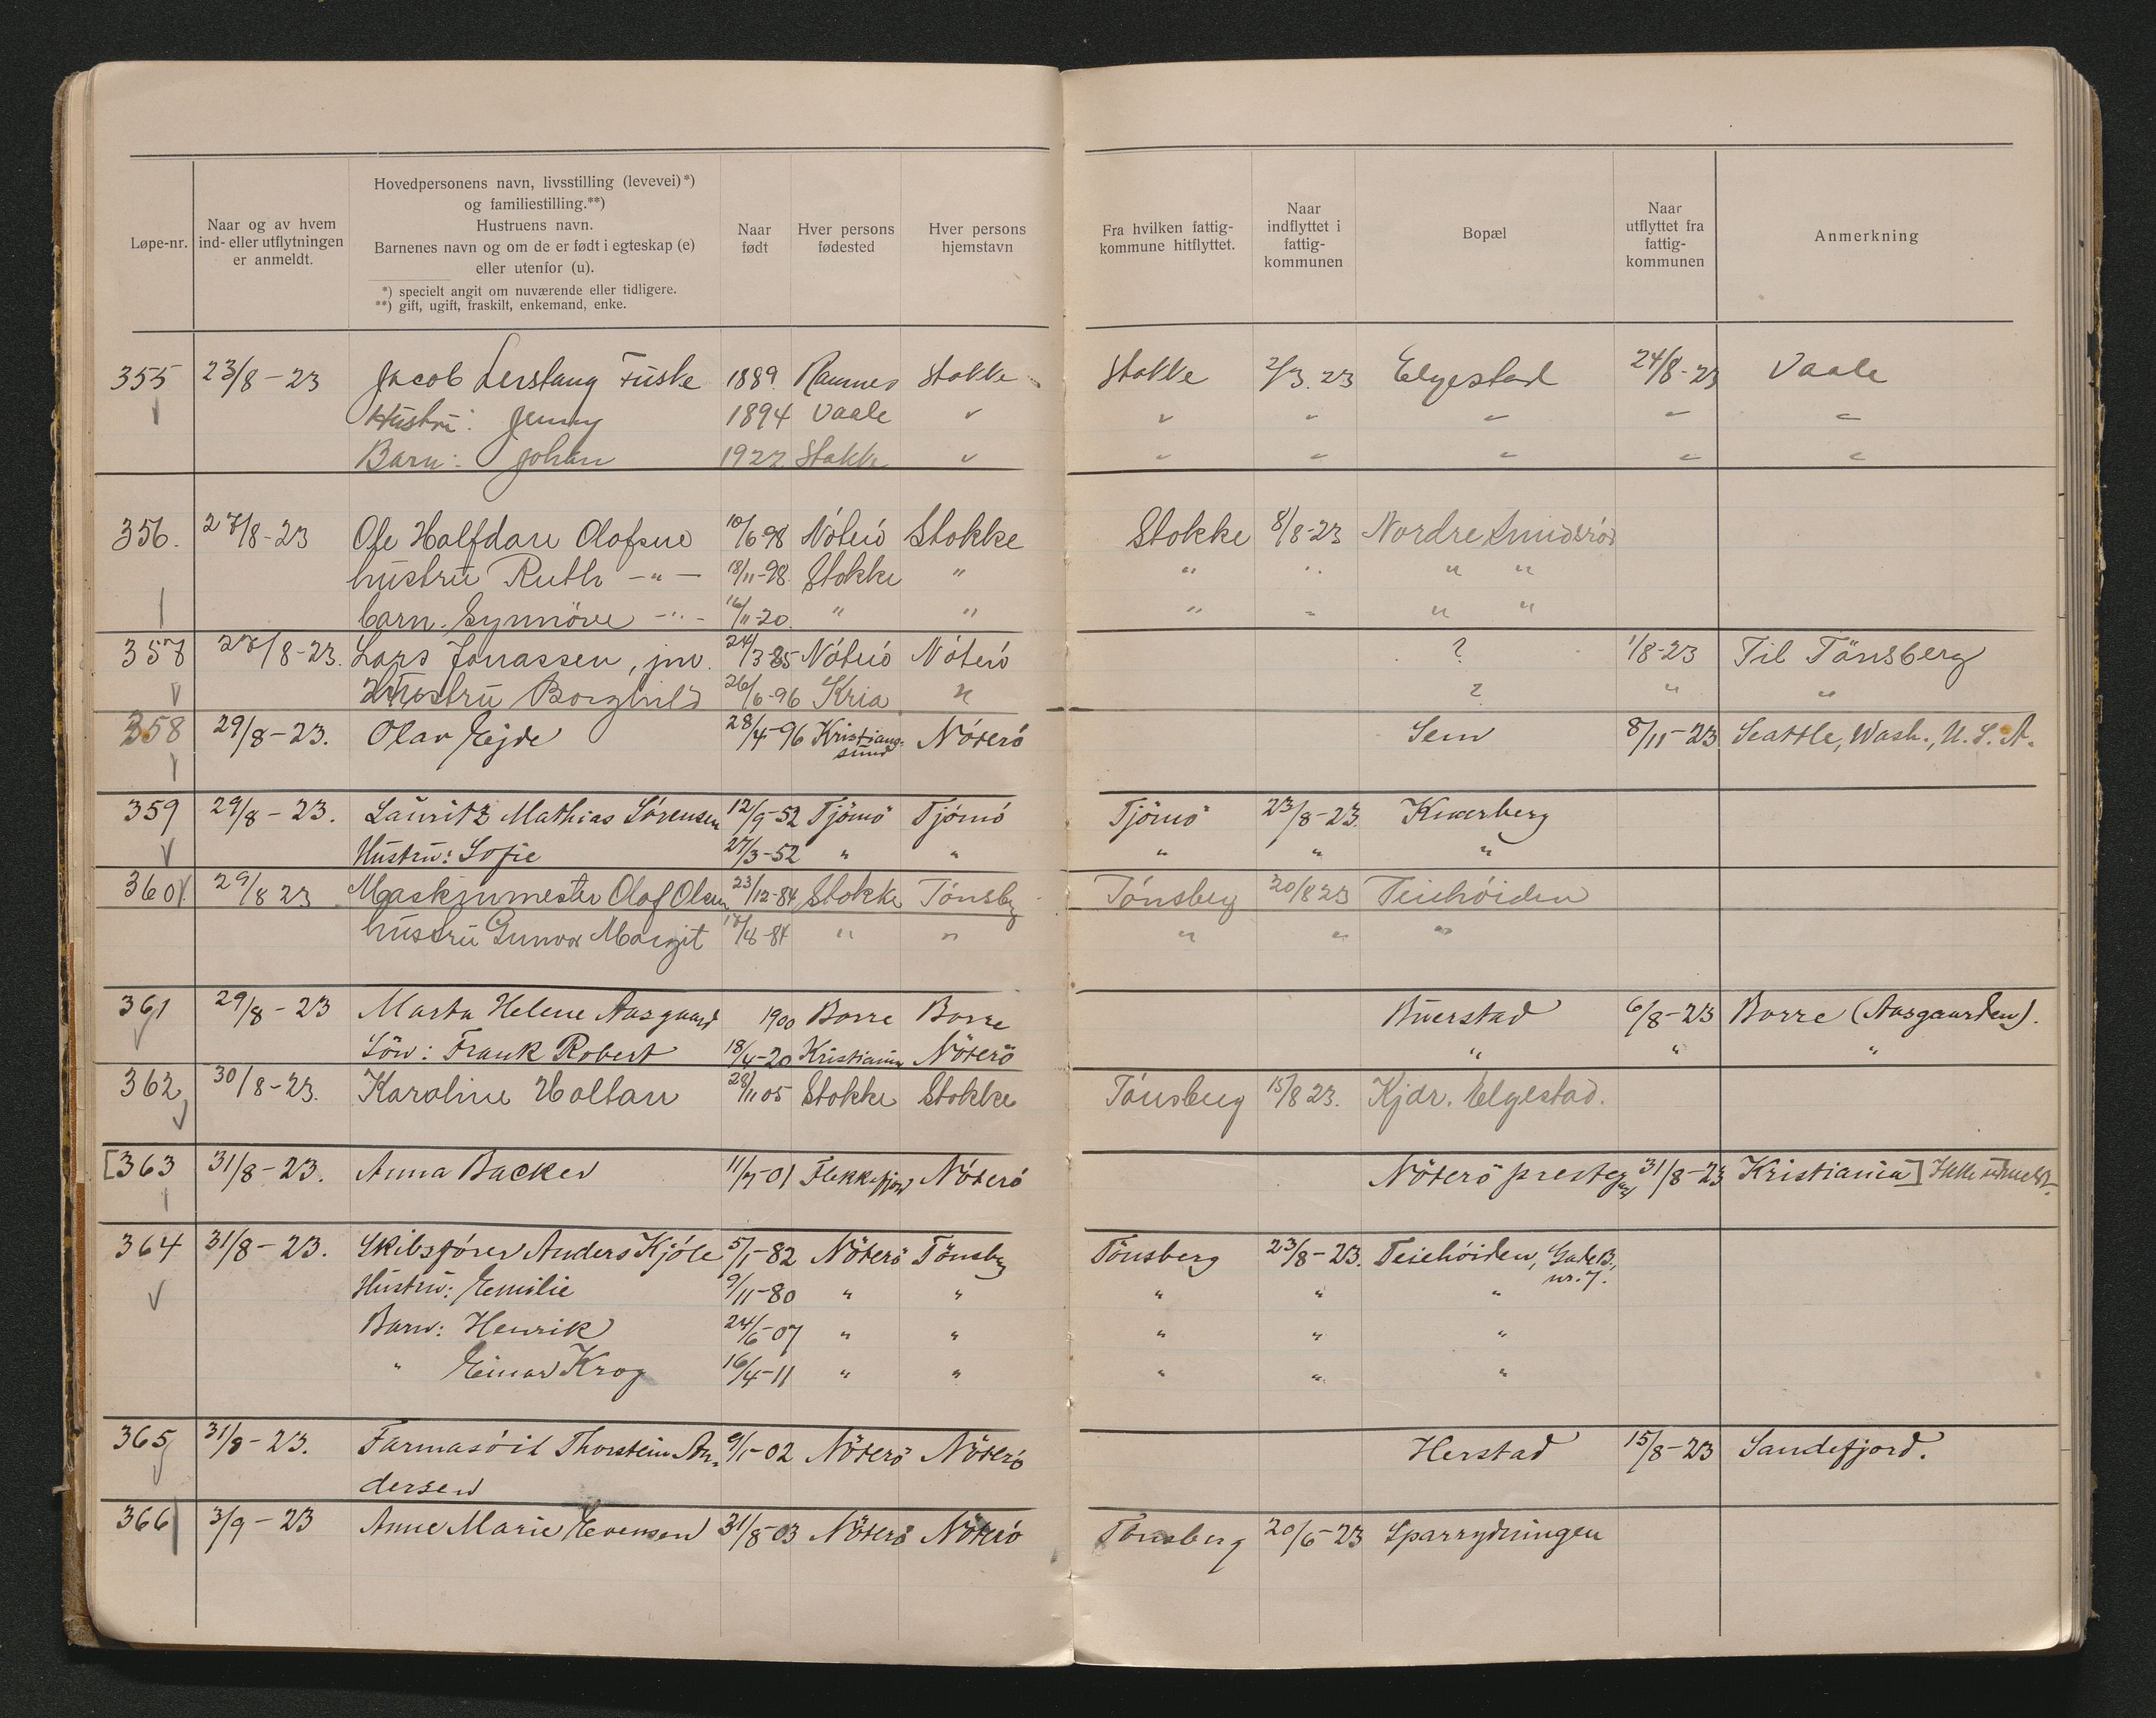 Løpe-nr.
Naar og av hvem
ind- eller utflytningen
er anmeldt.
Hovedpersonens navn, livsstilling (levevei)*)
og familiestilling.**)
Hustruens navn.
Barnenes navn og om de er født i egteskap (e)
eller utenfor (u).
*) specielt angit om nuværende eller tidligere.
**) gift, ugift, fraskilt, enkemand, enke.
Naar
født
Hver persons
fødested
Hver persons
hjemstavn
Fra hvilken fattig-
kommune hitflyttet.
Naar
indflyttet i
fattig-
kommunen
Bopæl
Naar
utflyttet fra
fattig-
kommunen
Anmerkning
355 23/8-23 Jacob Lerstang Fuske 1889 Ramnes Stokke Stokke 2/3.23 Elgestad 24/8-23 Vaale
Hustru: Jenny 1894 Vaale " " " " " "
Barn: Johan 1922 Stokke " " " " " "
356. 27/8-23 Ole Halfdan Olafsne 10/6-98 Nöterö Stokke Stokke 8/8-23 Nordre Smidsrød
hustru Ruth -"- 18/11-98. Stokke " " " " "
barn. Synnöve -"- 16/11-20. " " " " " "
357 27/8-23. Lars Jonassen, jnr. 24/3-85 Nöterö Nöterö ? 1/8-23 Til Tönsberg
Hustru Borghild 26/6-96 Kria " ? " "
358 29/8-23. Olav Ejde 28/4-96 Kristiansund Nöterö Sem 8/11-23 Seattle, Wash., U.S.A.
359 29/8-23. Lauritz Mathias Sörensen 12/9-52 Tjömö Tjömö Tjömö 23/8-23. Knarberg
Hustru: Sofie 27/3-52 " " " " "
360 29/8 23 Maskinmester Olaf Olsen 23/12-84 Stokke Tönsberg Tönsberg 20/8 23 Teiehöiden
hustru Gunvor Margit 17/8-84 " " " " "
361 29/8-23 Marta Helene Aasgaard 1900 Borre Borre Buerstad 6/8-23 Borre (Aasgaarden).
Sön: Frank Robert 18/4-20 Kristiania Nöterö " " "
362 30/8-23. Karoline Holtan 28/11 05 Stokke Stokke Tönsberg 15/8 23. Kjdr. Elgestad.
[363 31/8-23. Anna Backer 11/7-01 Flekkefjord Nöterö Nöterö presteg 31/8-23 Kristiania] Ikke utmeldt.
364 31/8-23. Skibsförer Anders Kjöle 5/1-82 Nöterö Tönsberg Tönsberg 23/8-23. Teiehöiden, Gade B,
nr. 7.
Hustru: Emilie 9/11-80 " " " " "
Barn: Henrik 24/6-07 " " " " "
" Einar Krog 16/4-11 " " " " "
365 31/8-23. Farmasöit Thorstein An- 9/1-02 Nöterö Nöterö Herstad 15/8-23 Sandefjord.
dersen
366 3/9-23 Anne Marie Evensen 31/8-03 Nöterö Nöterö Tönsberg 20/6-23 Sparrydningen